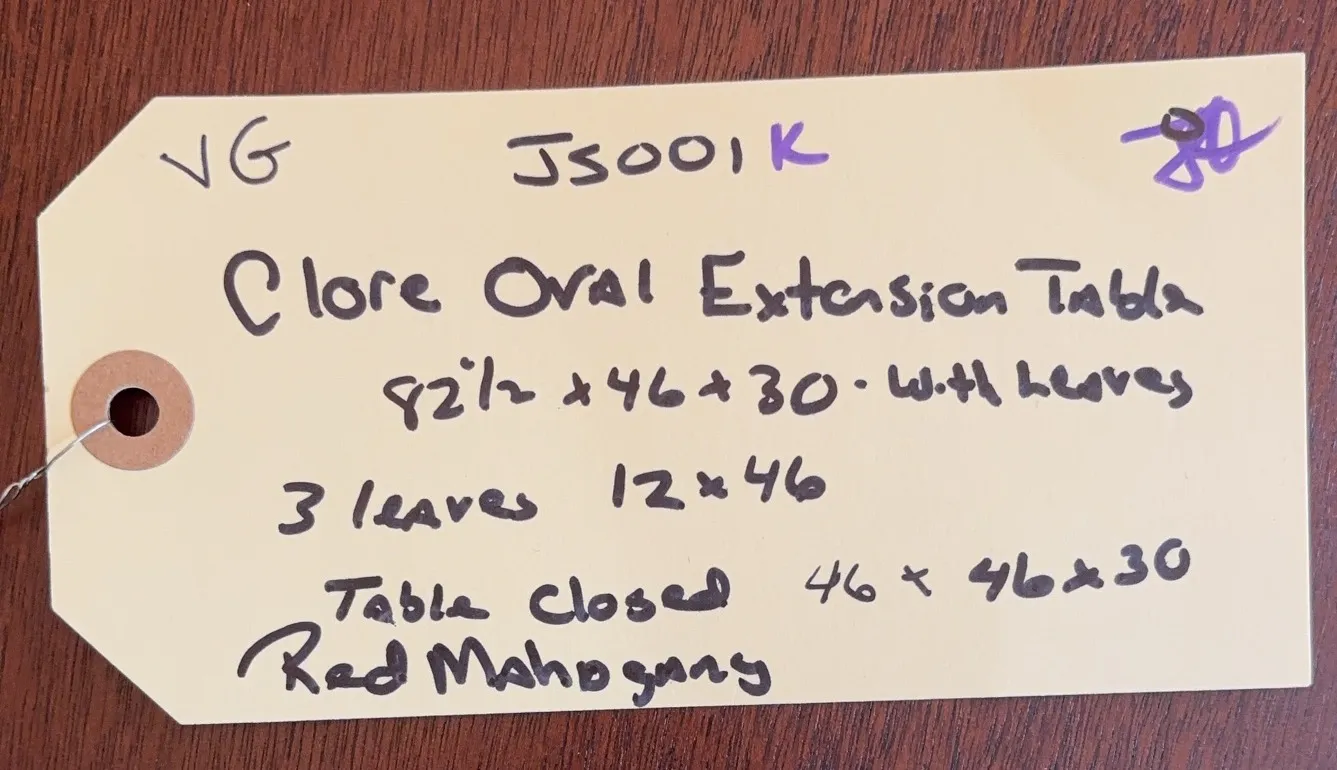 VG JS001K
Clore Oval Extension Table
82 1/2 x 46 x 30 . With Leaves
3 leaves 12 x 46
Table Closed 46 x 46 x 30
Red Mahogany